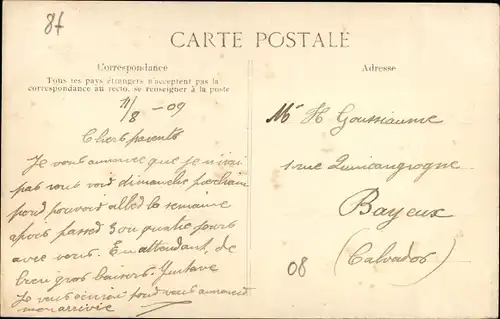 8f
CARTE POSTALE
Correspondance
Tous les pays étrangers n'acceptent pas la
correspondance au recto. se renseigner à la poste
Adresse
11/8 - 09
Chers parents
Je vous annonce que je n'irai
pas vous voir dimanche prochain
pour pouvoir aller la semaine
après passer 3 ou quatre jours
avec vous. En attendant, de
bien gros baisers. Gustave
Je vous écrirai pour vous annoncer
mon arrivée
Mr H Goussiaume
1 rue Quincangrogne
Bayeux
(Calvados)
08